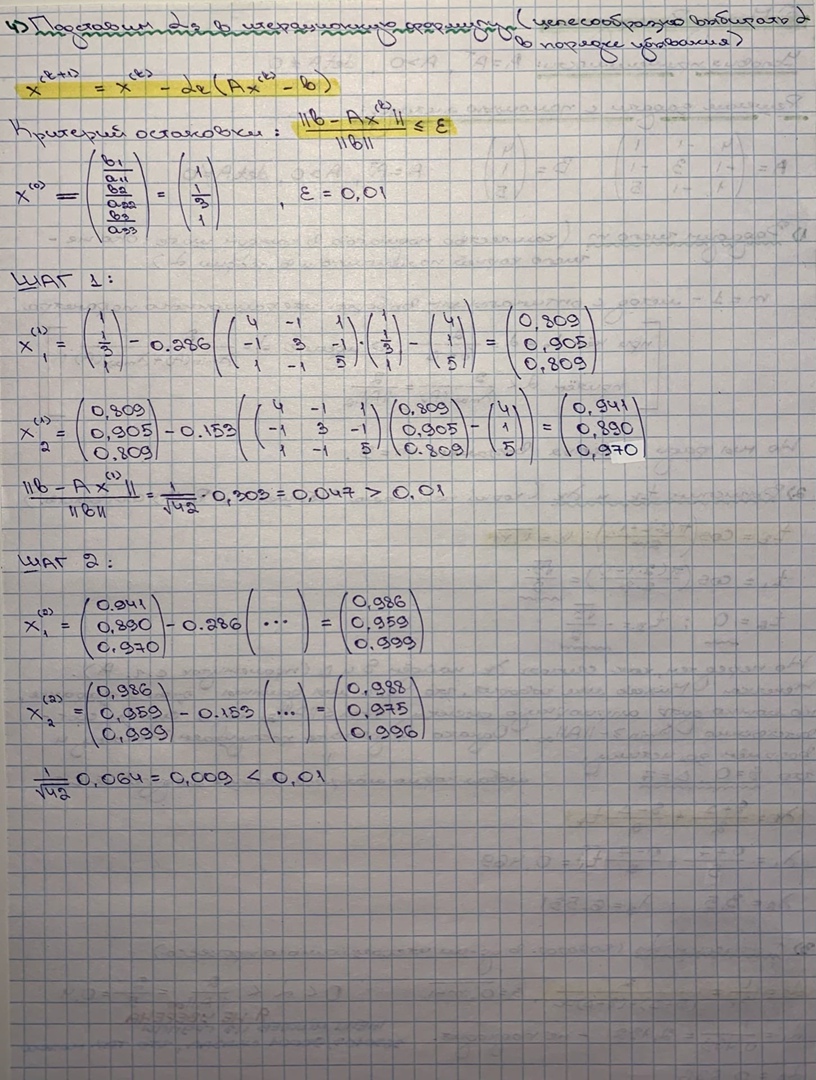 4) Подставим αз в итерационную формулу (целесообразно выбирать α в порядке убывания)
x^(k+1) = x^(k) - αk (Ax^(k) - b)
Критерий остановки: ||b - Ax^(k)|| / ||b|| ≤ ε
x^(0) = (b1/a11, b2/a22, b3/a33) = (1, 1/3, 1), ε = 0,01
ШАГ 1:
x1^(1) = (1, 1/3, 1) - 0.286 ((4 -1 1; -1 3 -1; 1 -1 5) · (1, 1/3, 1) - (4, 1, 5)) = (0,809, 0,905, 0,809)
x2^(1) = (0,809, 0,905, 0,809) - 0.153 ((4 -1 1; -1 3 -1; 1 -1 5) (0,809, 0,905, 0.809) - (4, 1, 5)) = (0,941, 0,890, 0,970)
||b - Ax^(1)|| / ||b|| = 1/√42 · 0,303 = 0,047 > 0,01
ШАГ 2:
x1^(2) = (0.941, 0,890, 0.970) - 0.286 (...) = (0,986, 0,959, 0.999)
x2^(2) = (0,986, 0,959, 0,999) - 0.153 (...) = (0,988, 0,975, 0,996)
1/√42 0,064 = 0,009 < 0,01